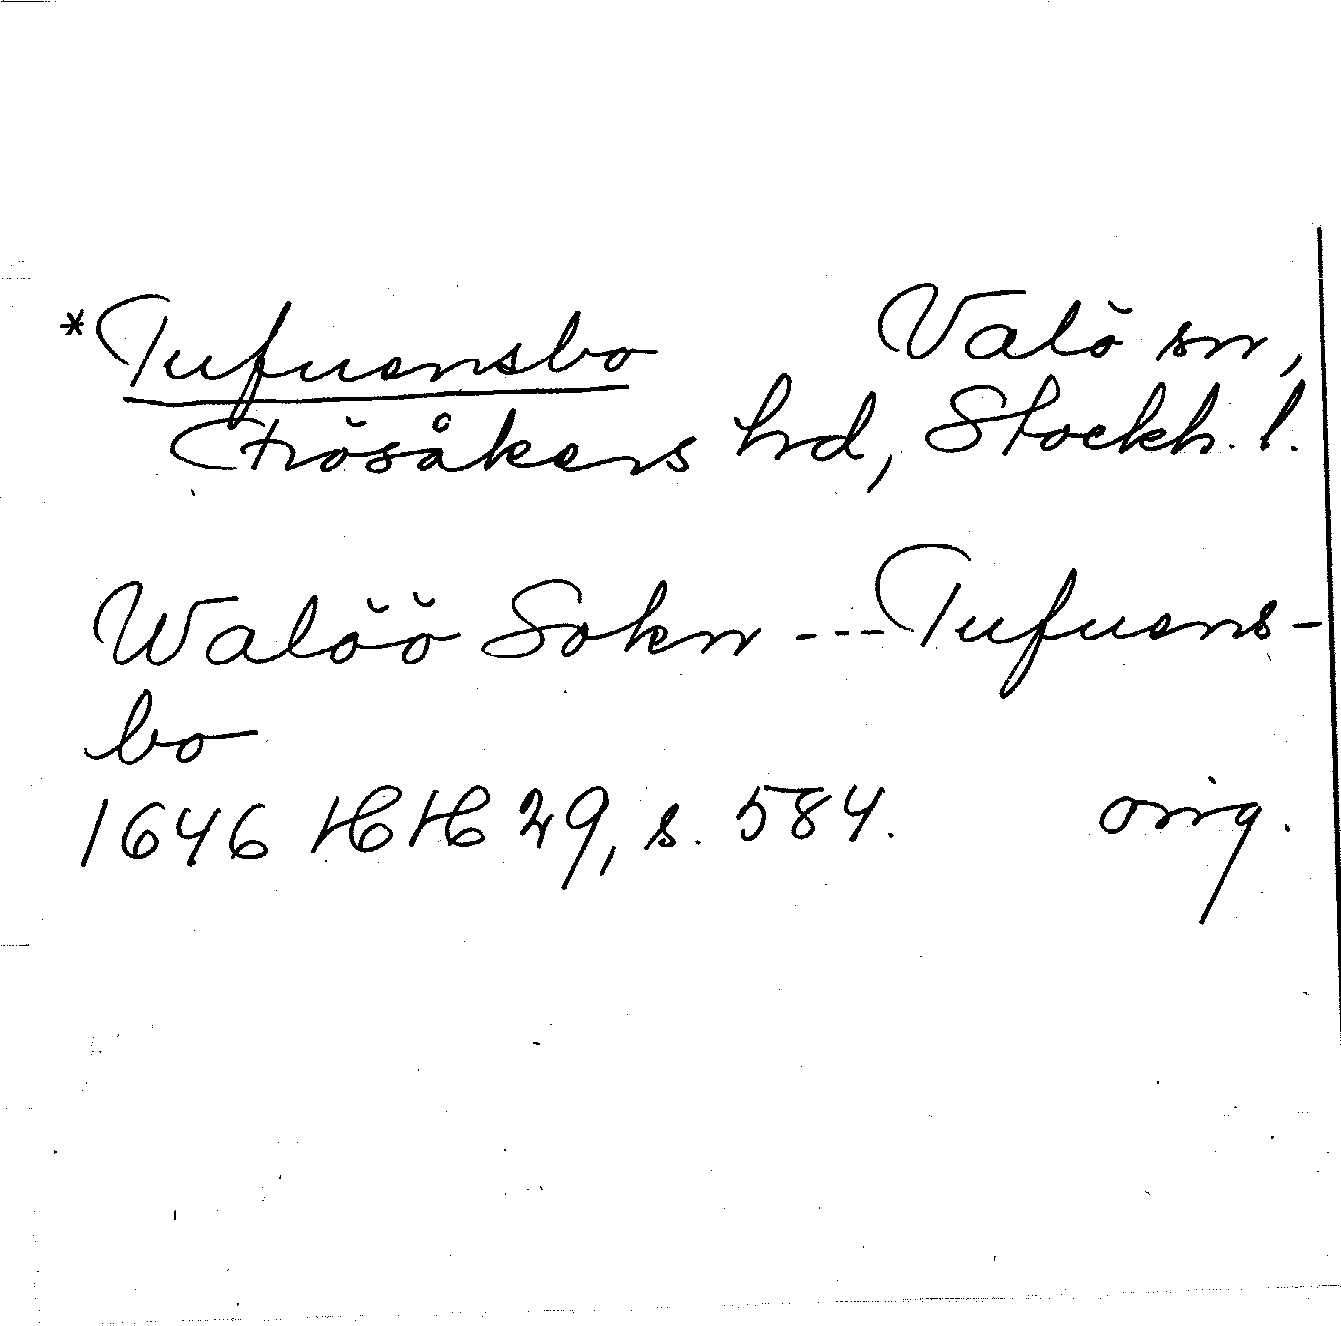 *Tufuensbo Valö sn,
Frösåkers hd, Stockh. l.
Walöö Sokn --- Tufuens-
bo
1646 HH 29, s. 584. orig.